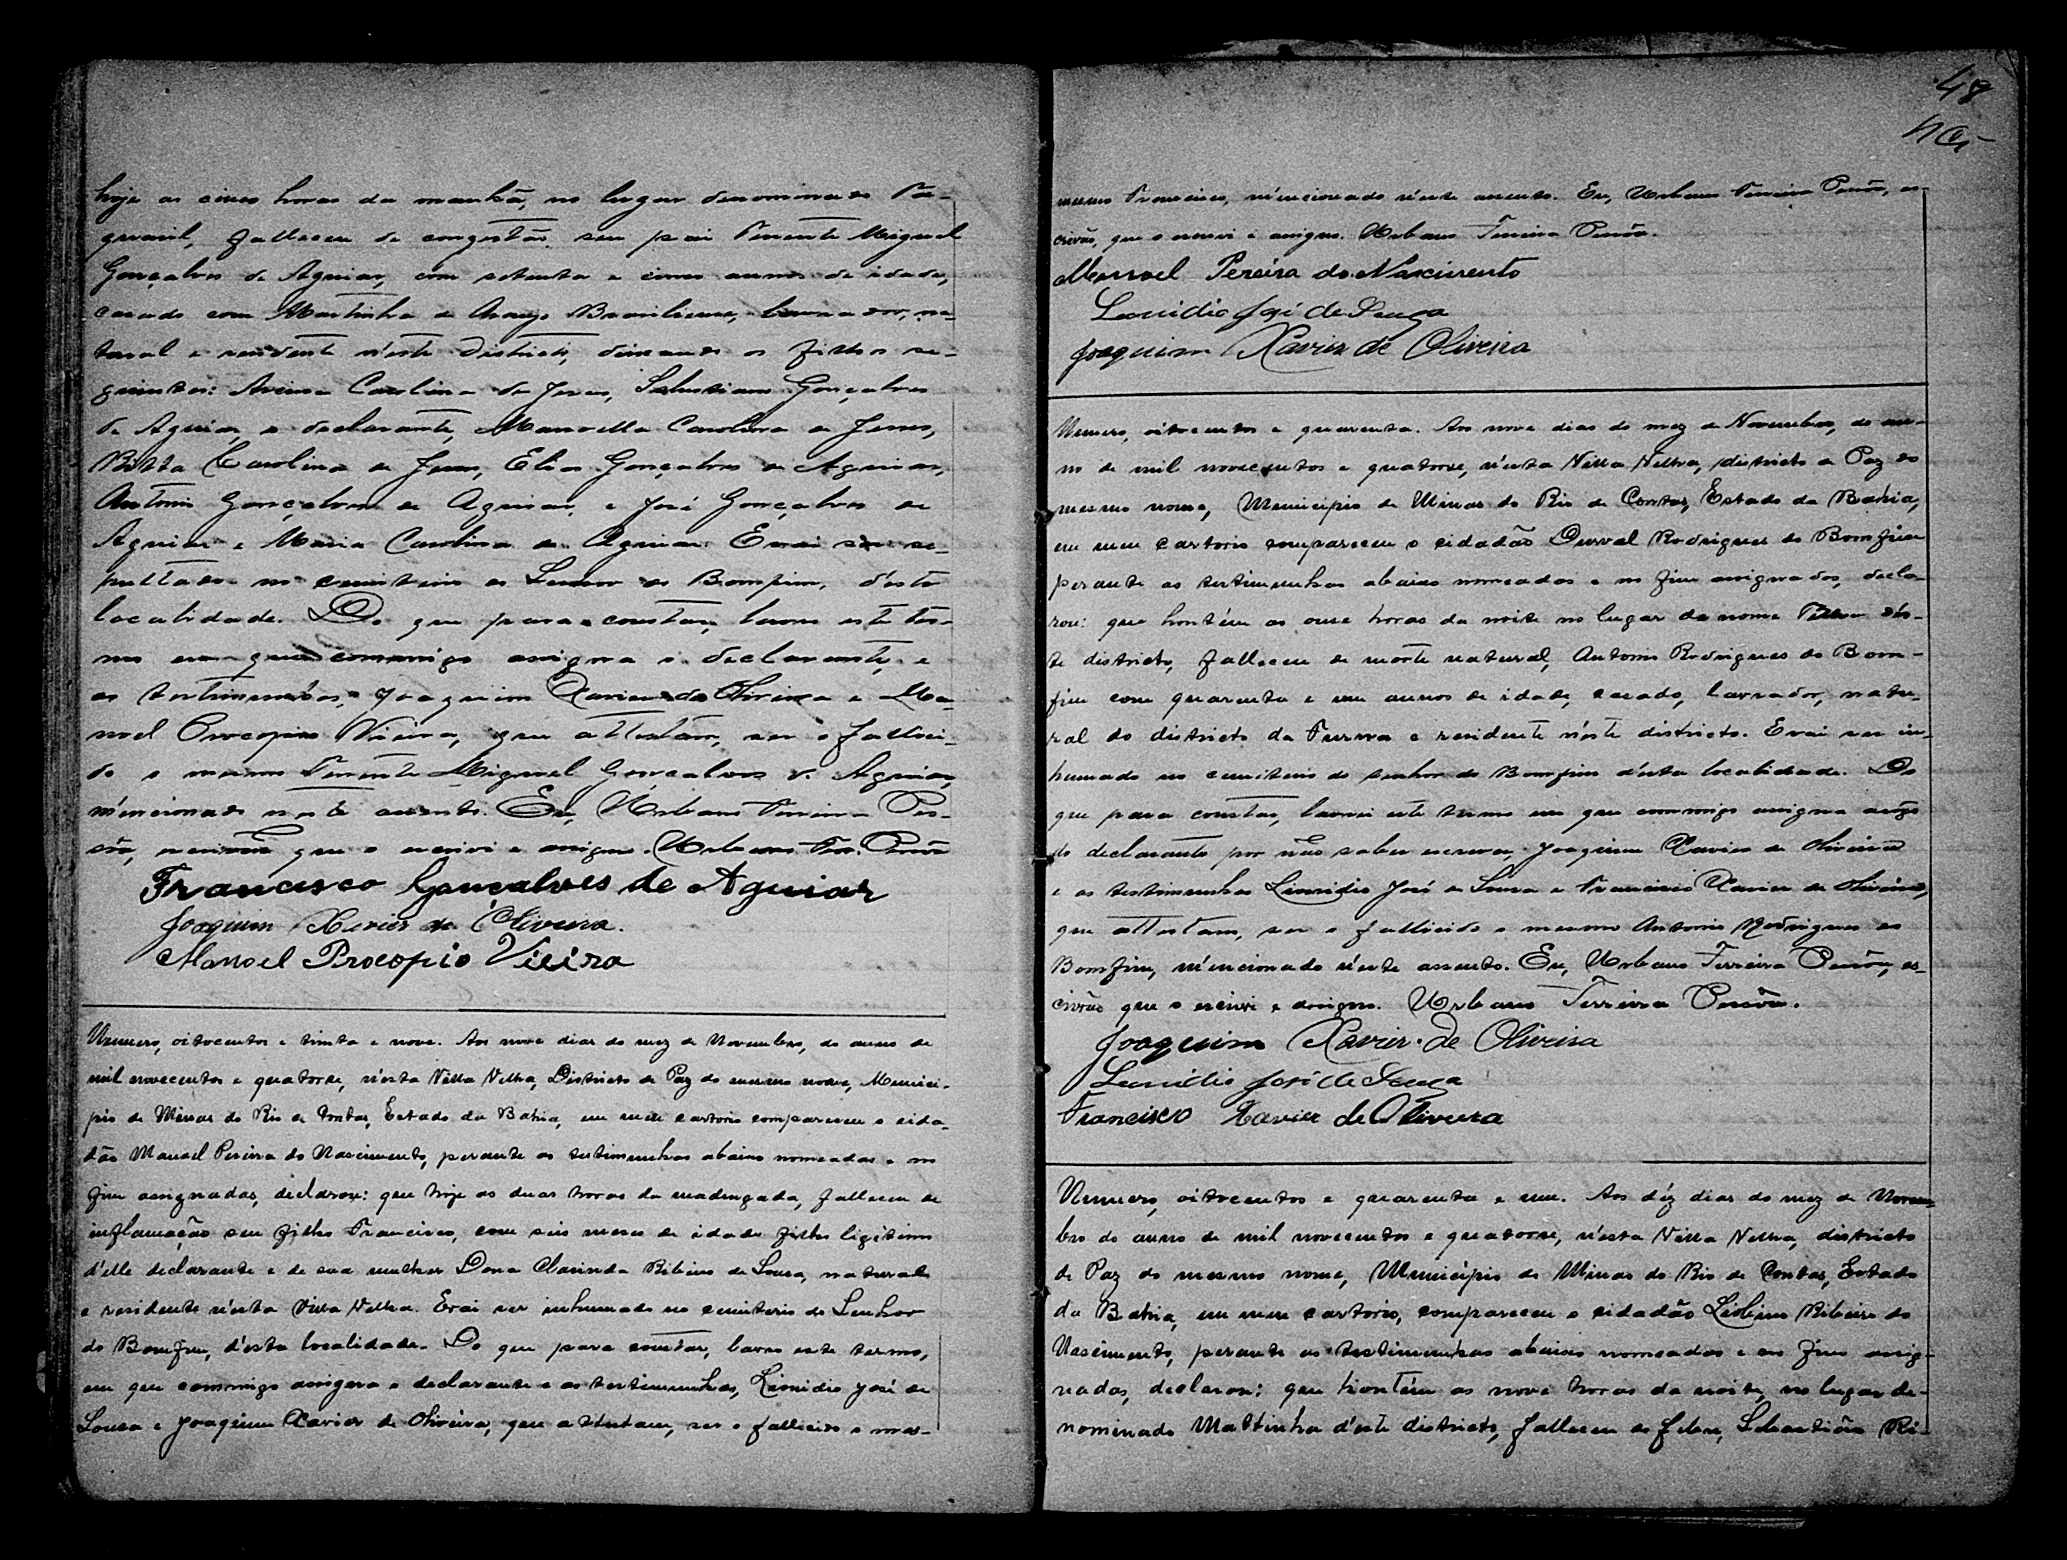 hoje as cinco horas da manhã, no lugar denominado Ta-
quaril, falleceu de congestão seu pai Tenente Miguel
Gonçalves de Aguiar, com setenta e cinco annos de idade,
casado com Martinha de Araujo Brasiliense, lavrador, na-
tural e residente n'este Districto, deixando os filhos se-
guintes: Carolina de Jesus, Salustiano Gonçalves
de Aguiar, o declarante, Manoella Carolina de Jesus,
Carolina de Jesus, Elias Gonçalves de Aguiar,
Antonio Gonçalves de Aguiar, e José Gonçalves de
Aguiar e Maria Carolina de Aguiar. E vai ser se-
pultado no cemiterio do Senhor do Bomfim, d'esta
localidade. Do que para constar, lavrei este ter-
mo em que commigo assigna o declarante, e
as testimunhas, Joaquim Xavier de Oliveira e Ma-
noel Procopio Vieira, que attestam, ser o falleci-
do o mesmo Tenente Miguel Gonçalves de Aguiar,
mencionado neste assento. Eu, Urbano Ferreira Pes-
sôa, escrivão que o escrevi e assigno. Urbano Fer. Pessôa
Francisco Gonçalves de Aguiar
Joaquim Xavier de Oliveira.
Manoel Procopio Vieira
Numero, oitocentos e trinta e nove. Aos nove dias do mez de Novembro, do anno de
mil novecentos e quatorze, n'esta Villa Velha, Districto de Paz do mesmo nome, Munici-
pio de Minas do Rio de Contas, Estado da Bahia, em meu cartorio compareceu o cida-
dão Manoel Pereira do Nascimento, perante as testimunhas abaixo nomeadas e no
fim assignadas, declarou: que hoje as duas horas da madrugada, falleceu de
inflamação seu filho Francisco, com seis mezes de idade filho ligitimo
d'elle declarante e de sua mulher Dona Clarinda Ribeiro de Souza, natural
e residente n'esta Villa Velha. E vai ser inhumado no cemiterio do Senhor
do Bomfim, d'esta localidade. Do que para constar, lavrei este termo,
em que commigo assigna o declarante e as testimunhas, Leonidio José de
Souza e Joaquim Xavier de Oliveira, que attestam, ser o fallecido o mes-
48
mesmo Francisco, mencionado n'este assento. Eu, Urbano Ferreira Pessôa, es-
crivão, que o escrevi e assigno. Urbano Ferreira Pessôa.
Manoel Pereira do Nascimento
Leonidio José de Souza
Joaquim Xavier de Oliveira
Numero, oitocentos e quarenta. Aos nove dias do mez de Novembro, do an-
no de mil novecentos e quatorze, n'esta Villa Velha, districto de Paz do
mesmo nome, Municipio de Minas do Rio de Contas, Estado da Bahia,
em meu cartorio compareceu o cidadão Durval Rodrigues do Bomfim
perante as testimunhas abaixo nomeadas e no fim assignados, decla-
rou: que hontém as onze horas da noite no lugar de nome d'es-
te districto, falleceu de morte natural, Antonio Rodrigues do Bom-
fim com quarenta e um annos de idade, casado, lavrador, natu-
ral do districto da Furna e residente n'este districto. E vai ser in-
humado no cemiterio do senhor do Bomfim d'esta localidade. Do
que para constar, lavrei este termo em que commigo assigna a rogo
do declarante por não saber escrever, Joaquim Xavier de Oliveira
e as testimunhas Leonidio José de Souza e Francisco Xavier de Oliveira,
que attestam, ser o fallecido o mesmo Antonio Rodrigues do
Bomfim, mencionado n'este assento. Eu, Urbano Ferreira Pessôa, es-
crivão que o escrevi e assigno. Urbano Ferreira Pessôa.
Joaquim Xavier de Oliveira
Leonidio José de Souza
Francisco Xavier de Oliveira
Numero, oitocentos e quarenta e um. Aos déz dias do mez de Novem-
bro do anno de mil novecentos e quatorze, n'esta Villa Velha, districto
de Paz do mesmo nome, Municipio de Minas do Rio de Contas, Estado
da Bahia, em meu cartorio, compareceu o cidadão Ribeiro do
Nascimento, perante as testimunhas abaixo nomeados e no fim assig-
nados, declarou: que hontém as nove horas da noite, no lugar de-
nominado Mattinha d'este districto, falleceu de febre, Sebastião Ri-